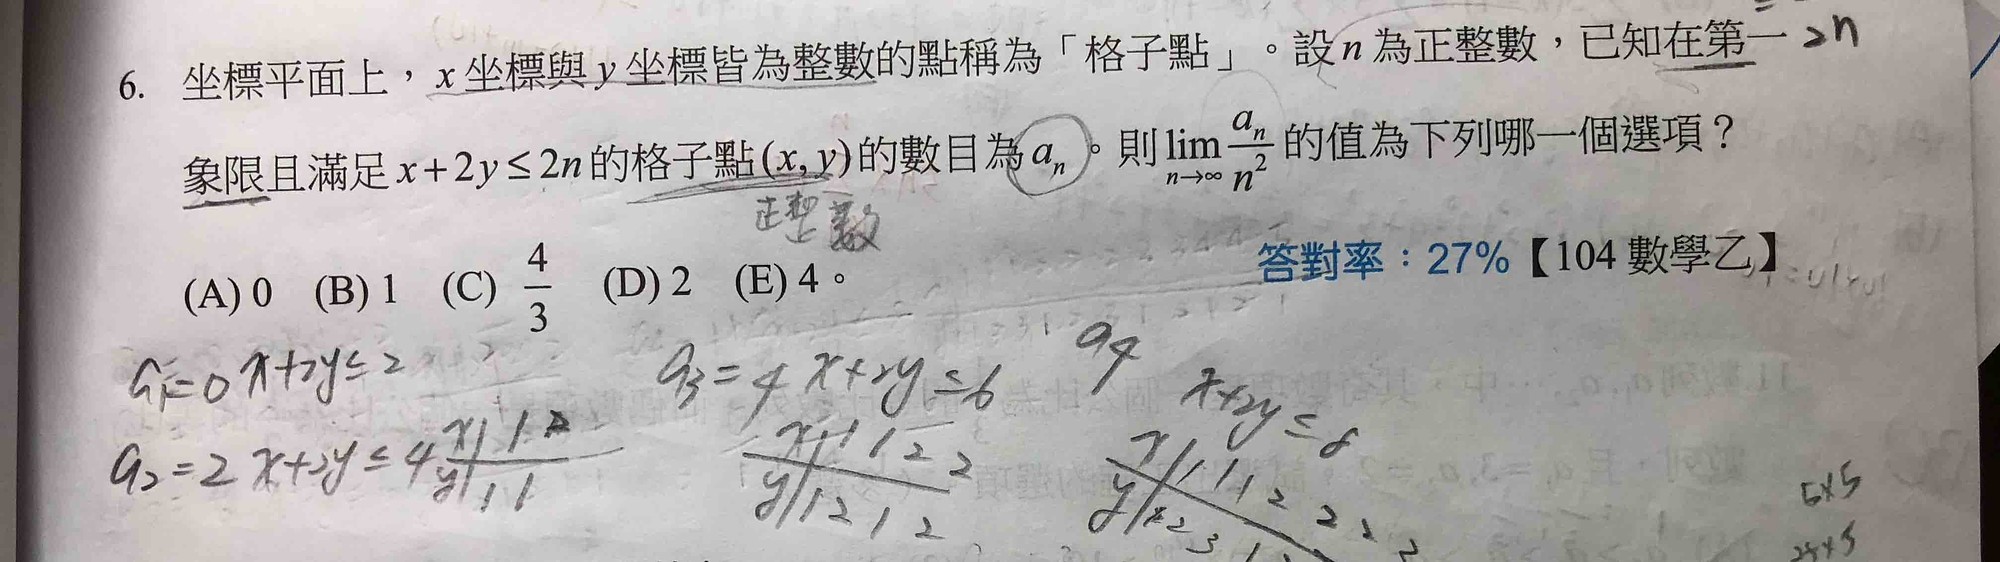 6. 坐標平面上，x 坐標與 y 坐標皆為整數的點稱為「格子點」。設 n 為正整數，已知在第一 2n
象限且滿足 x+2y≤2n 的格子點(x, y)的數目為 aₙ。則 lim n→∞ aₙ/n² 的值為下列哪一個選項？
正整數
(A) 0 (B) 1 (C) 4/3 (D) 2 (E) 4。 答對率：27%【104 數學乙】
a₁=0 x+2y≤2 a₃=4 x+2y≤6 a₄ x+2y≤8
a₂=2 x+2y≤4 x 1 2 x 1 1 2 2 x 1 1 1 2 2 2
y 1 1 y 1 2 1 2
5×5